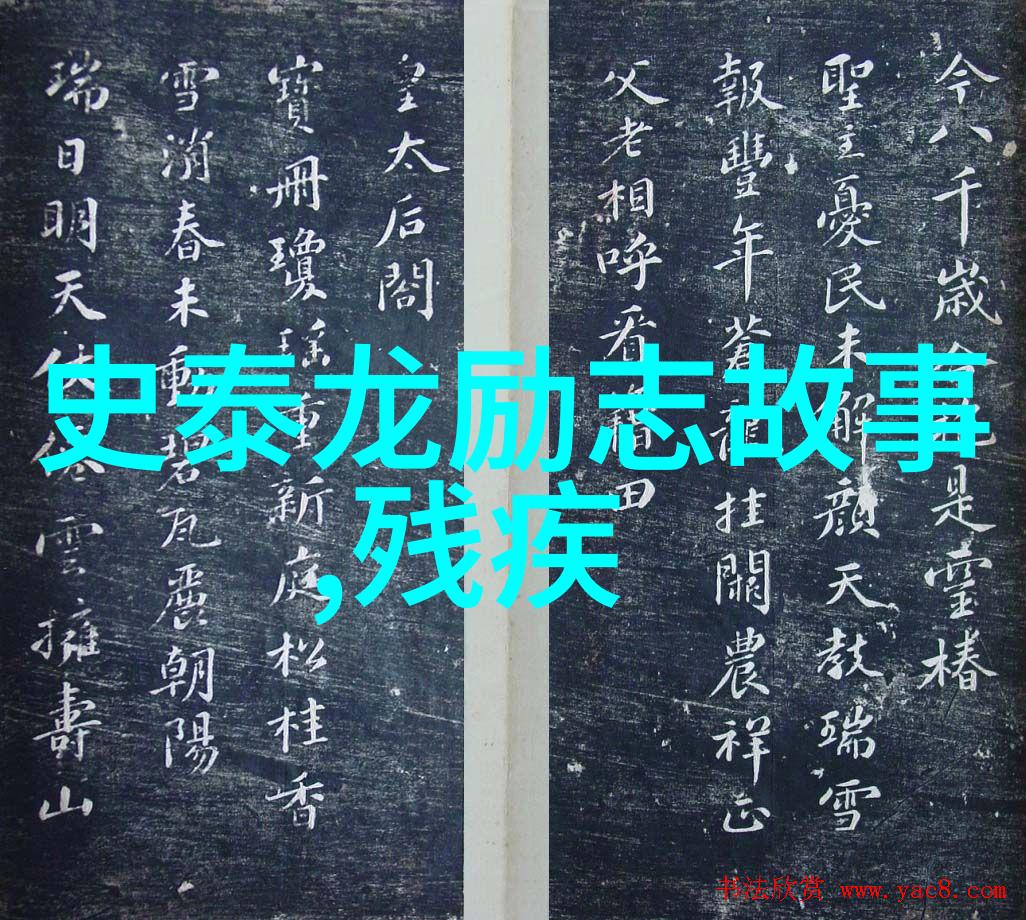 今八千歲是靈椿
聖主憂民未解顏天教瑞雪
報豐年蒼龍挂闕農祥正
父老相呼看籍田
皇太后閣
寶冊瓊瑤重新庭松桂香
雪消春未動碧瓦麗朝陽
瑞日明天仗仙雲擁壽山
史泰龙励志故事
,残疾
书法欣赏 www.yac8.com